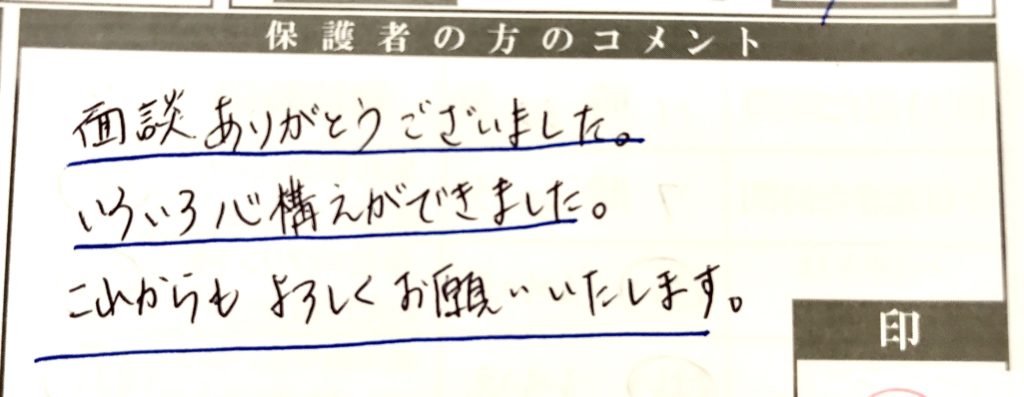 保護者の方のコメント
面談ありがとうございました。
いろいろ心構えができました。
これからもよろしくお願いいたします。
印